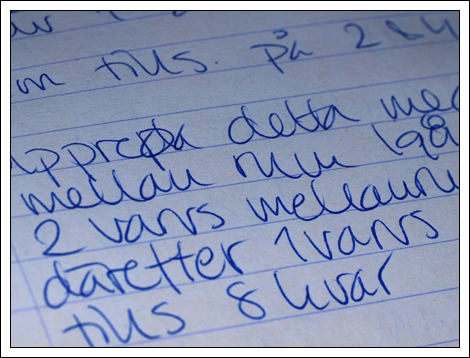 tills. på 2 & 4
upprepa detta me
mellan rum 1gå
2 varvs mellanru
därefter 1 varvs
tills 8 kvar